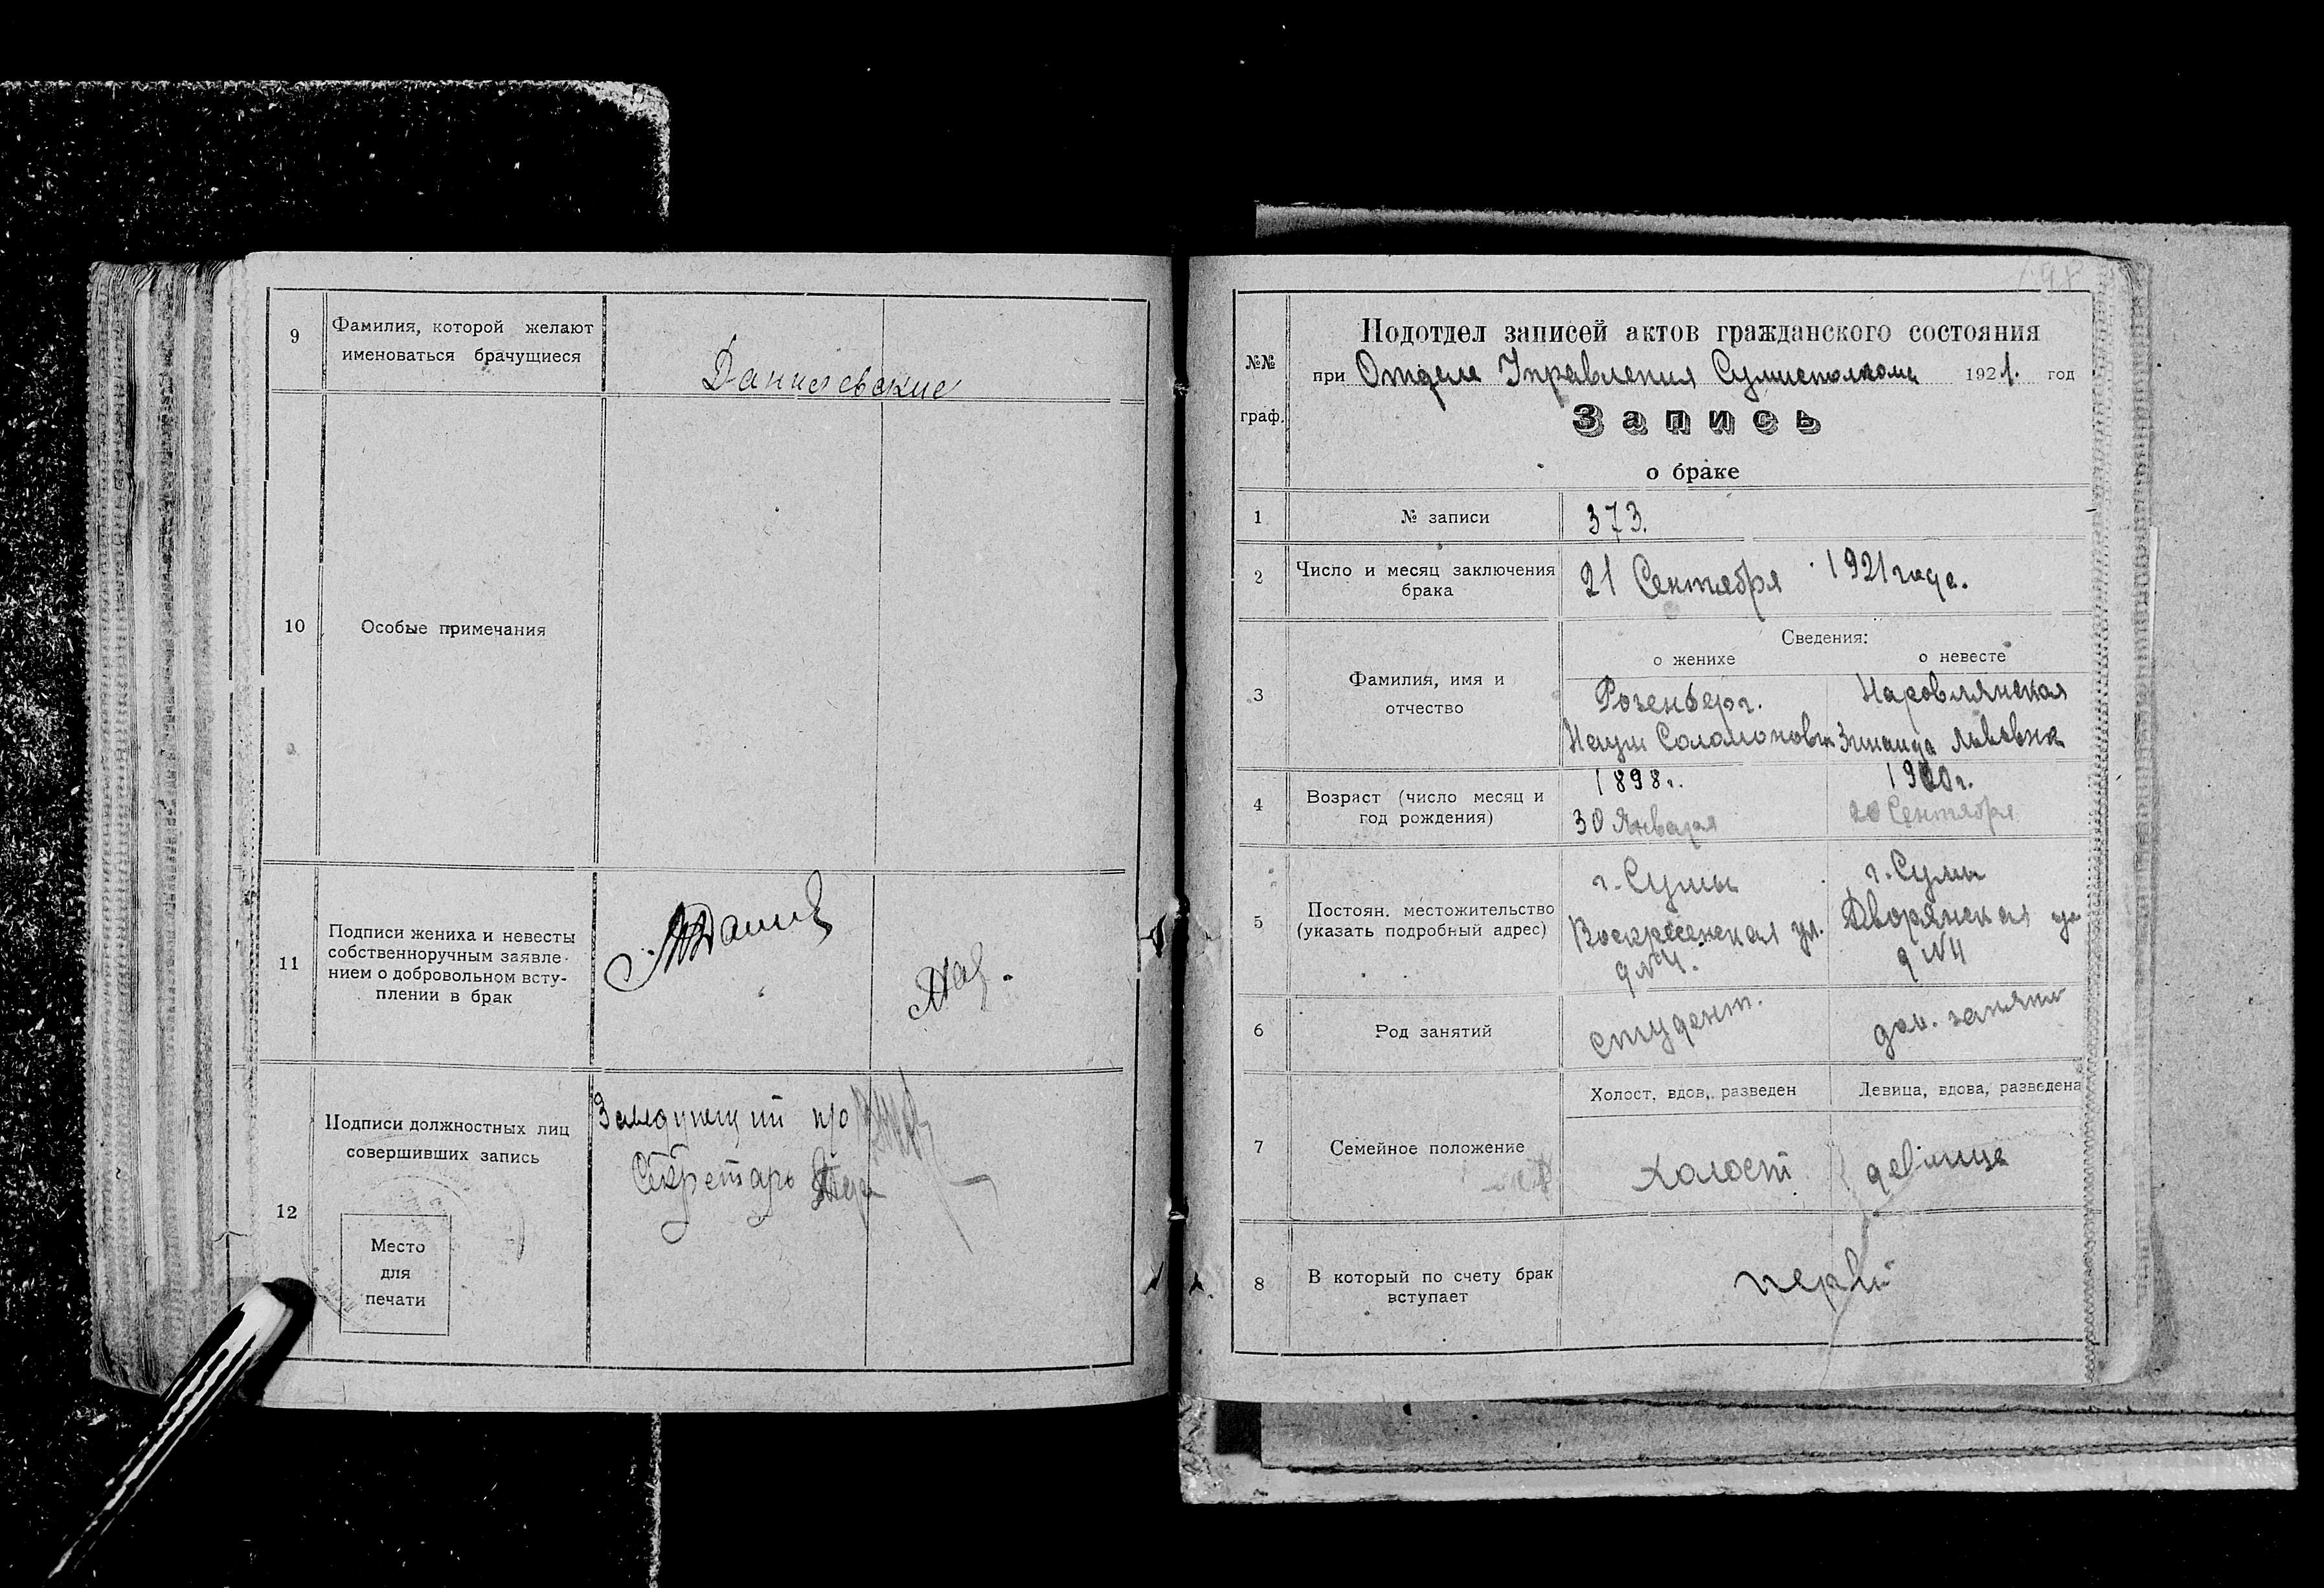 9
Фамилия, которой желают
именоваться брачущиеся
Данилевские
10
Особые примечания
11
Подписи жениха и невесты
собственноручным заявле-
нием о добровольном всту-
плении в брак
12
Подписи должностных лиц
совершивших запись
Заведующий п/о
Секретарь
Место
для
печати
№№
граф.
Подотдел записей актов гражданского состояния
при Отделе Управления Сумисполкома 1921. год
Запись
о браке
1
№ записи
373.
2
Число и месяц заключения
брака
21 Сентября 1921 года.
3
Фамилия, имя и
отчество
Сведения:
о женихе
о невесте
Розенберг.
Наум Соломонович
Наровлянская
Зинаида Львовна
4
Возраст (число месяц и
год рождения)
1898г.
30 Января
1900г.
20 Сентября
5
Постоян. местожительство
(указать подробный адрес)
г. Сумы
Воскресенская ул.
д №4.
г. Сумы
Дворянская ул
д №4
6
Род занятий
студент.
дом. занят
7
Семейное положение
Холост, вдов, разведен
Девица, вдова, разведена
холост
девица
8
В который по счету брак
вступает
первый